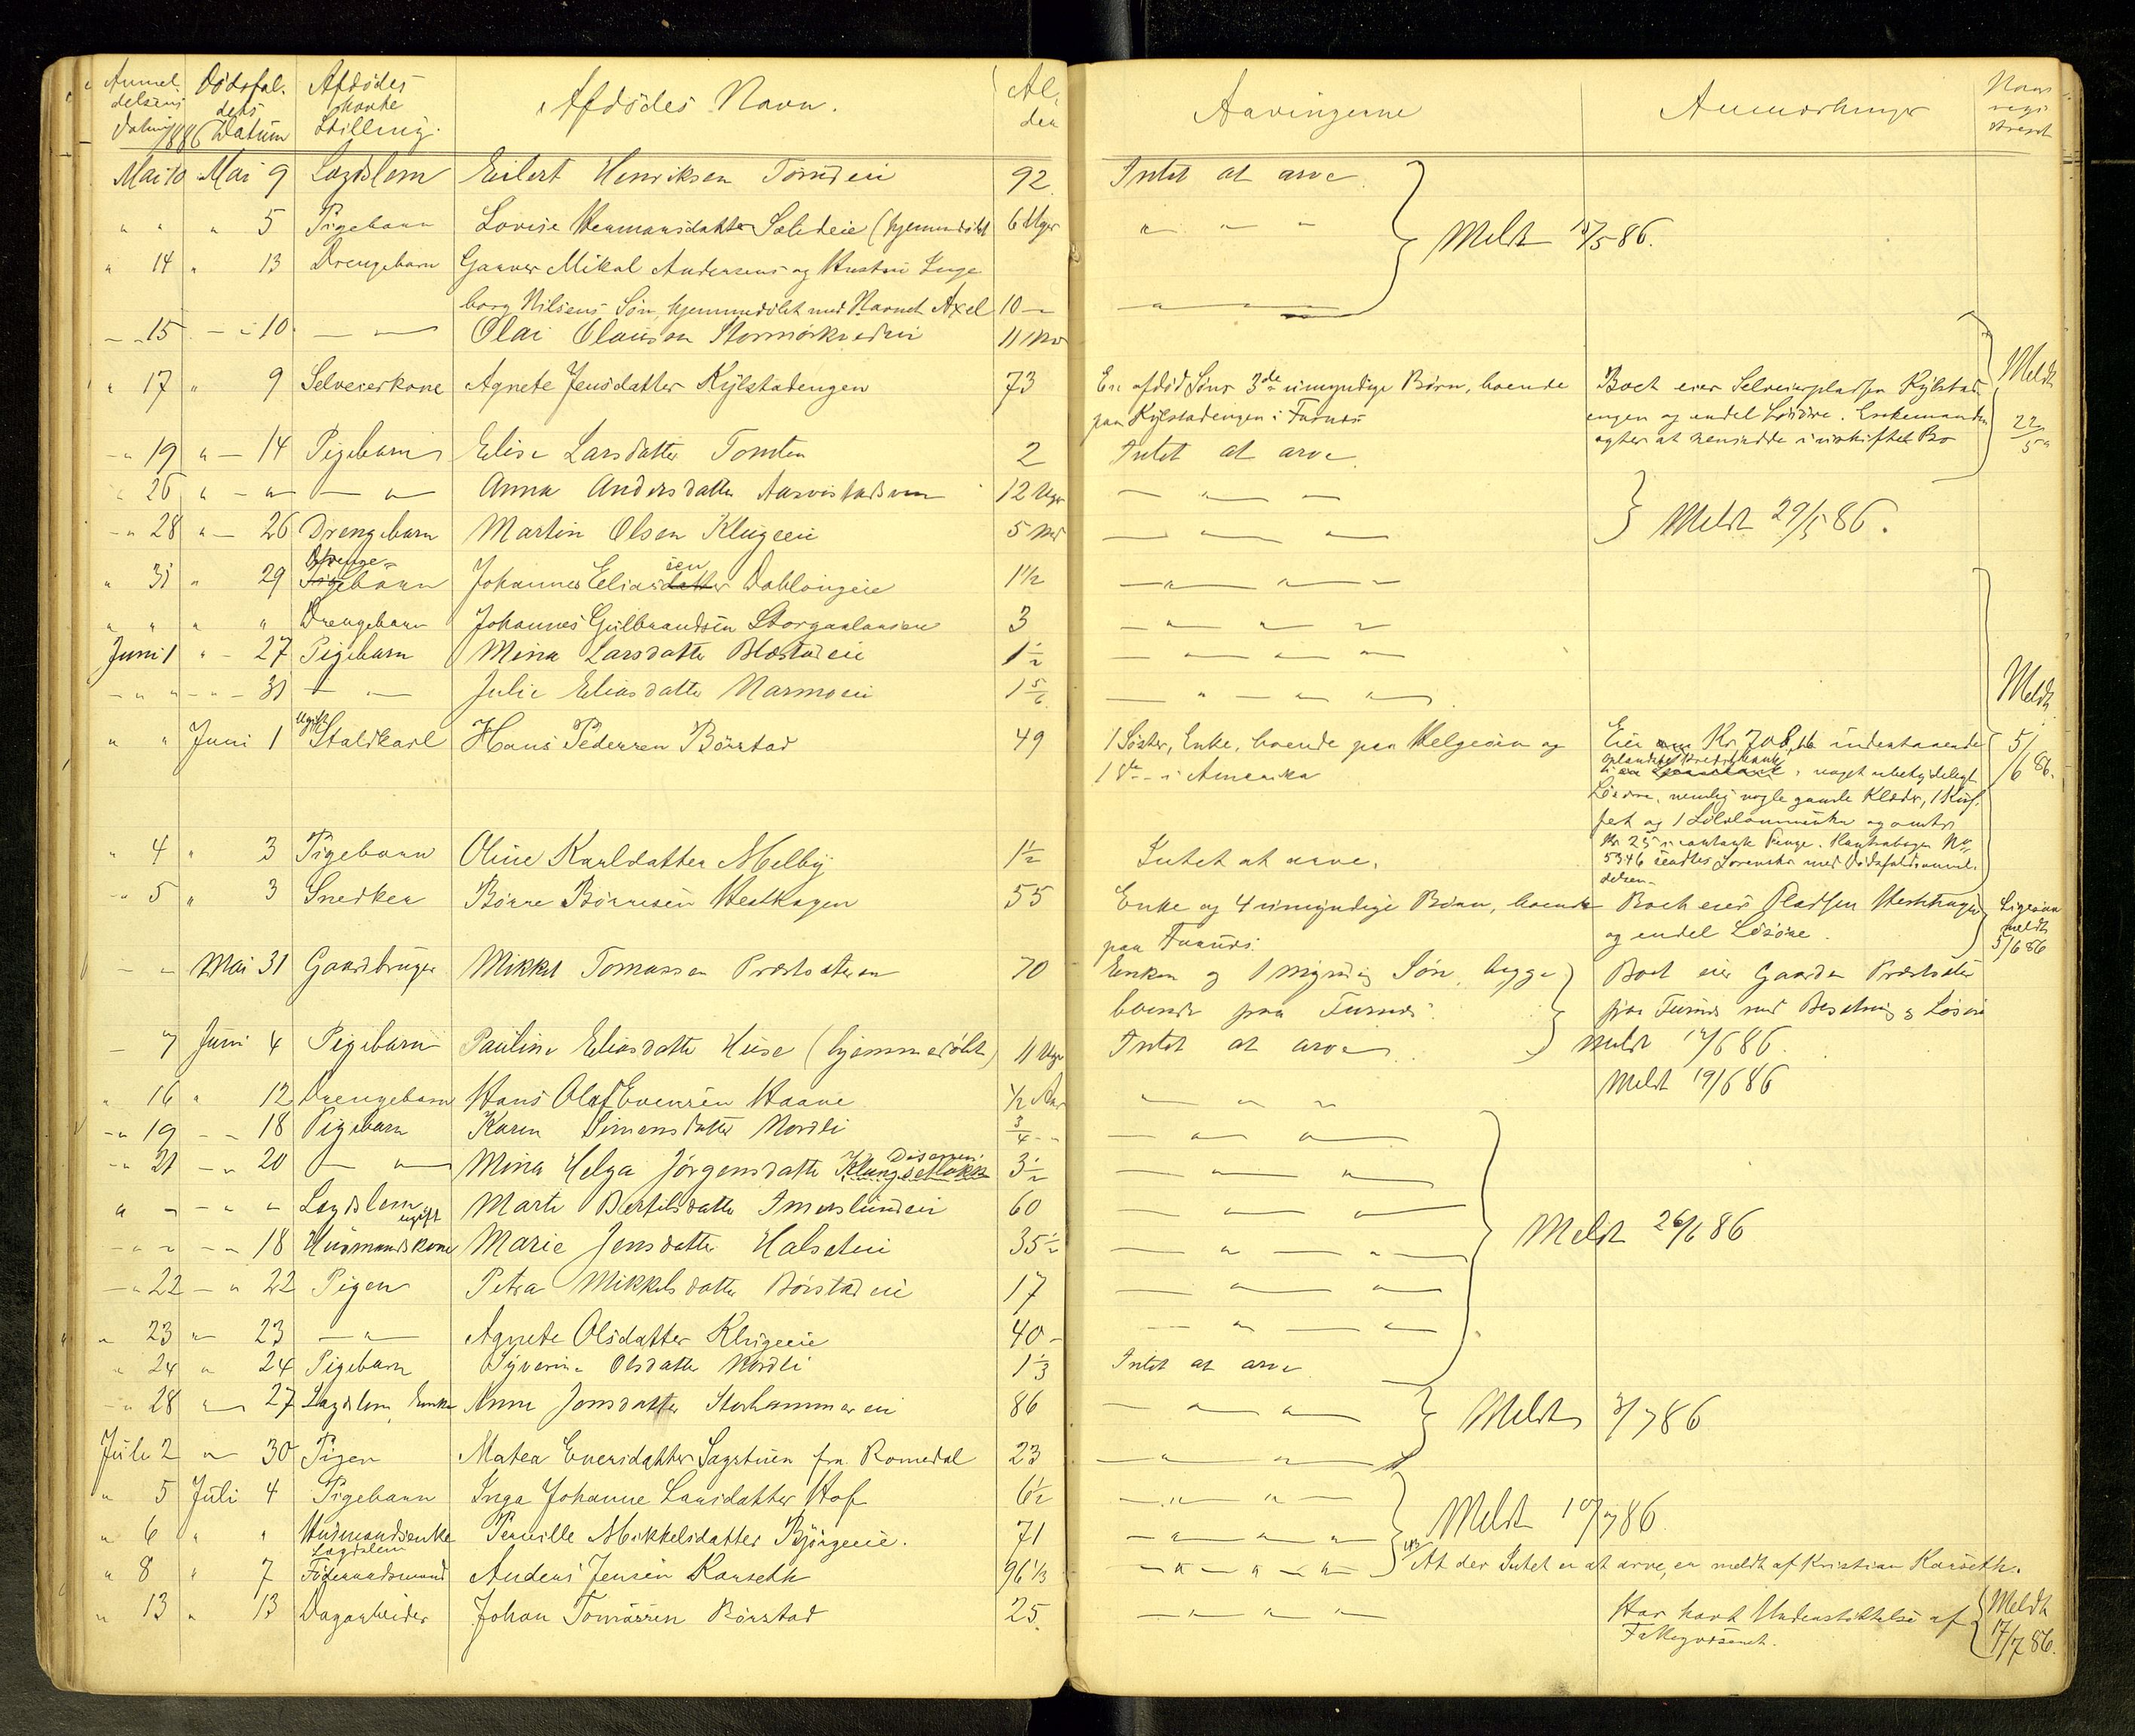 Anmel- Dødsfal- Afdødes Afdødes Navn. Al- Arvingerne Anmærkninger
delsens dets Stilling. der
Datum 1886 Datum
Mai 10 Mai 9 Lægdslem Eilert Henriksen 92 Intet at arve
" " " 5 Pigebarn Lovise Hermansdatter (hjemmedøbt 6 Uger " — " — " Meldt 15/5 86.
" 14 " 13 Drengebarn Garver Mikal Andersens og Hustru Inge-
borg Nilsens Søn, hjemmedøbt med Navnet Axel 10 — " — "
— " 15 — " 10 — " — Olai Olausen 11 Md
" 17 " 9 Selveierkone Agnete Jensdatter Kylstadengen 73 En afdød Søns 3de umyndige Børn, boende Boet eier Selveierpladsen Kylstad- Meldt
paa Kylstadengen i Furnæs engen og endel Løsøre. Enkemanden 22/5
agter at hensidde i uskiftet Bo
— " 19 " — 14 Pigebarn Elise Larsdatter Tomten 2 Intet at arve
" 26 " — " — " — Anna Andersdatter 12 Uger — " —
— " 28 " — 26 Drengebarn Martin Olsen Klugeeie 5 Md — " — " — Meldt 29/5 86.
" 31 " 29 Drenge-barn Johannes Eliassen 1½ — " — " —
" " " " Drengebarn Johannes Gulbrandsen 3 — " — " — "
Juni 1 " — 27 Pigebarn Mina Larsdatter 1½ — " — " — " —
— " " — " — 31 — " — Julie Eliasdatter 1 5/6 — " — " — " — Meldt
" " Juni 1 Ugift Staldkarl Hans Pedersen Børstad 49 1 Søster, Enke, boende paa Helgøen og Eier Kr. 708,16 indestaaende 5/6 86.
1 Do — i Amerika Oplandske Kreditbank, noget ubetydeligt
Løsøre, nemlig nogle gamle Klæder, 1 Kuf-
fert og 1 og omtr.
Kr 25 i kontante Penge. No
5346 sendtes med Dødsfaldsanmel-
delsen —
" 4 " 3 Pigebarn Oline Karlsdatter Melby 1½ Intet at arve.
— " 5 " 3 Snedker Børre Børresen Hesthagen 55 Enke og 4 umyndige Børn, boende Boet eier Pladsen Hesthagen Ligesaa
paa Furnæs. og endel Løsøre. meldt 5/6 86
— " Mai 31 Gaardbruger Mikkel Tomassen Præstsæteren 70 Enken og 1 myndig Søn, begge Boet eier Gaarden Præstsæter
boende paa Furnæs. paa Furnæs med Besetning & Løsøre
— 7 Juni 4 Pigebarn Pauline Eliasdatter Huse (hjemmedøbt) 11 Uger Intet at arve Meldt 12/6 86.
" 16 " 12 Drengebarn Hans Olaf Evensen Haave ½ Aar — " — " Meldt 19/6 86
— " 19 — " 18 Pigebarn Karen Simensdatter Nordli 3/4 — " — " —
— " 21 — " 20 — " — Mina Helga Jørgensdatter 3½ — " — " —
" — " — " Lægdslem ugift Marte Bertilsdatter Imerslundeie 60 — " — " —
— " " — " 18 Husmandskone Marie Jensdatter Halseteie 35½ — " — " — Meldt 26/6 86
— " 22 — " 22 Pigen Petra Mikkelsdatter Børstadeie 17 — " — " —
" 23 " — 23 — " — Agnete Olsdatter Klugeeie 40 — — " — " —
" 24 " 24 Pigebarn Syverine Olsdatter Nordli 1⅓ Intet at arve
— " 28 " — 27 Lægdslem, Enke Anne Jonsdatter Storhammereie 86 — " — " — Meldt 3/7 86
Juli 2 " — 30 Pigen Matea Evensdatter Sagstuen fra Romedal 23 — " — " —
" 5 Juli 4 Pigebarn Inga Johanne Larsdatter Hof 6½ — " — " —
" 6 " " Husmandsenke Pernille Mikkelsdatter Bjørgeeie. 71 — " — " — " — Meldt 10/7 86
Lægdslem
" 8 " 7 Føderaadsmand Anders Jensen Karseth 96⅓ — " — " — " — At der Intet er at arve, er meldt af Kristian Karseth.
" 13 " 13 Dagarbeider Johan Tomassen Børstad 25. — " — " — Har havt Understøttelse af Meldt
Fattigvæsenet. 17/7 86.